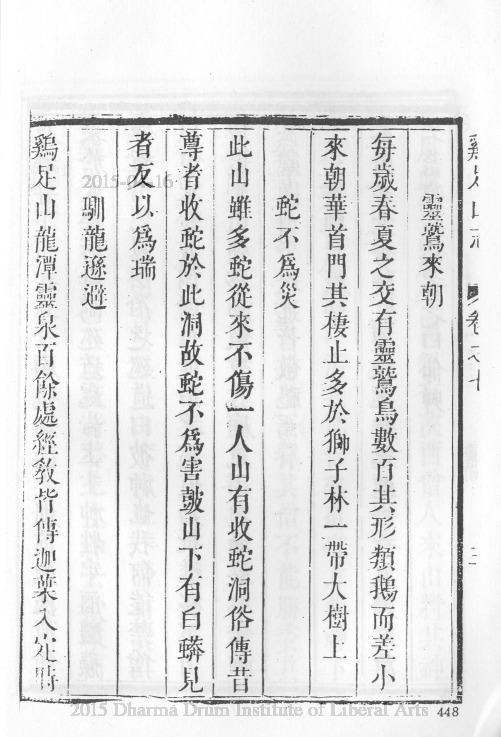 雞足山志 卷之七 二
靈鷲來朝
每歲春夏之交有靈鷲鳥數百其形類鵝而差小
來朝華首門其棲止多於獅子林一帶大樹上
蛇不爲災
此山雖多蛇從來不傷一人山有收蛇洞俗傳昔
尊者收蛇於此洞故蛇不爲害鼓山下有白蟒見
者反以爲瑞
馴龍遜避
雞足山龍潭靈泉百餘處經教皆傳迦葉入定時
2015 Dharma Drum Institute of Liberal Arts
448